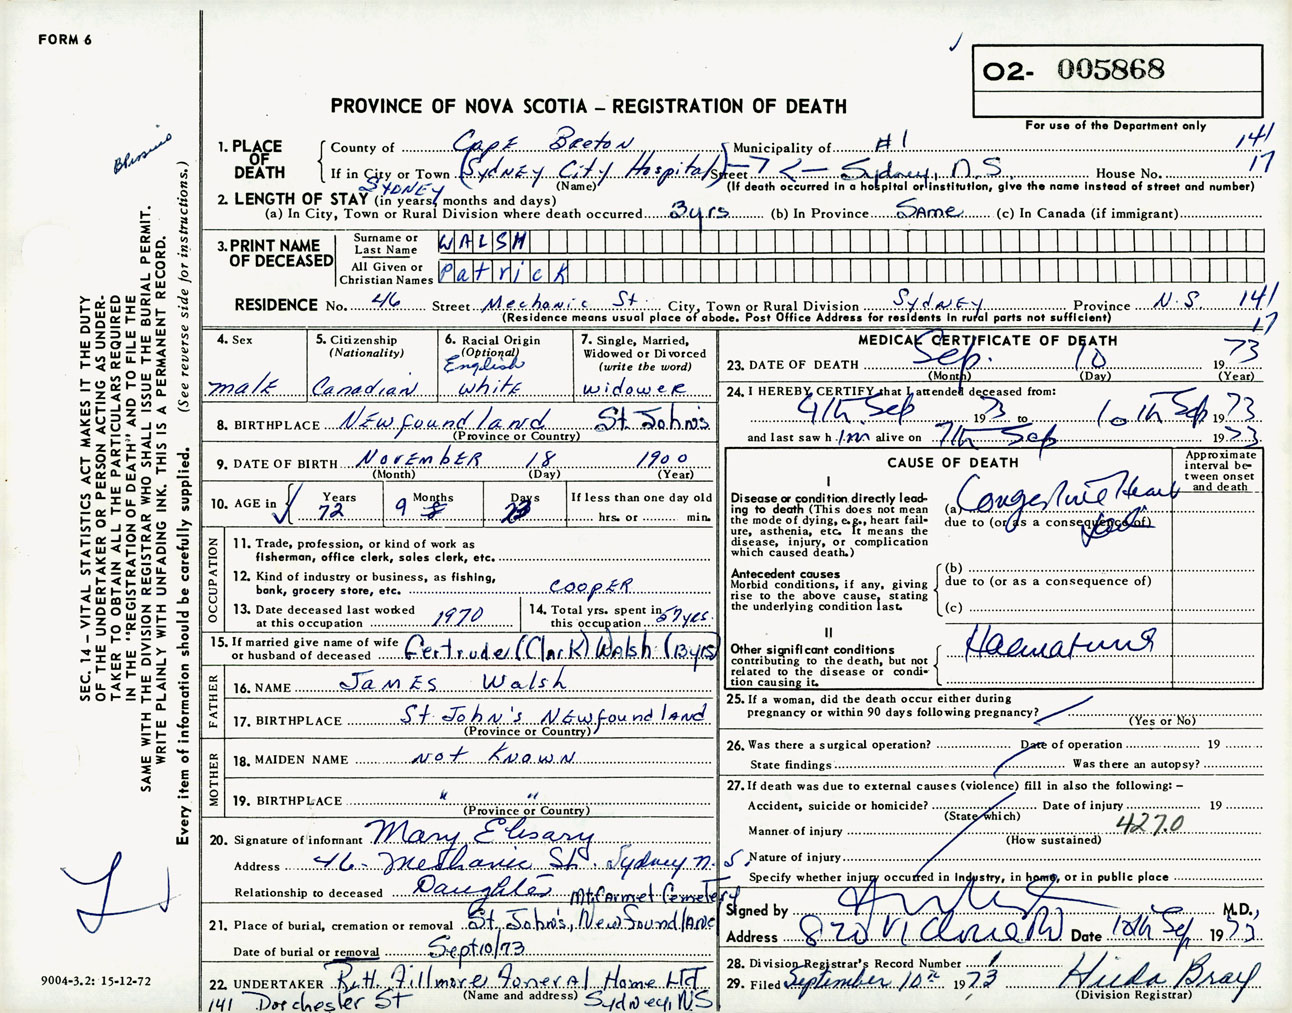 FORM 6
O2- 005868
PROVINCE OF NOVA SCOTIA – REGISTRATION OF DEATH
For use of the Department only
1. PLACE OF DEATH
County of Cape Breton Municipality of #1 141
If in City or Town (Sydney City Hospital) Street Sydney, N.S. House No. 17
SYDNEY (Name) (If death occurred in a hospital or institution, give the name instead of street and number)
2. LENGTH OF STAY (in years, months and days)
(a) In City, Town or Rural Division where death occurred 3 yrs (b) In Province Same (c) In Canada (if immigrant)
3. PRINT NAME OF DECEASED
Surname or Last Name WALSH
All Given or Christian Names Patrick
RESIDENCE No. 46 Street Mechanic St. City, Town or Rural Division Sydney Province N.S. 141
(Residence means usual place of abode. Post Office Address for residents in rural parts not sufficient) 17
4. Sex male
5. Citizenship (Nationality) Canadian
6. Racial Origin (Optional) English white
7. Single, Married, Widowed or Divorced (write the word) widower
8. BIRTHPLACE Newfoundland St John's
(Province or Country)
9. DATE OF BIRTH November 18 1900
(Month) (Day) (Year)
10. AGE in Years 72 Months 9 Days If less than one day old hrs. or min.
OCCUPATION
11. Trade, profession, or kind of work as fisherman, office clerk, sales clerk, etc.
12. Kind of industry or business, as fishing, bank, grocery store, etc. cooper
13. Date deceased last worked at this occupation 1970
14. Total yrs. spent in this occupation 57 yrs.
15. If married give name of wife or husband of deceased Gertrude (Clark) Walsh (13 yrs)
FATHER
16. NAME James Walsh
17. BIRTHPLACE St. John's Newfoundland
(Province or Country)
MOTHER
18. MAIDEN NAME not Known
19. BIRTHPLACE " "
(Province or Country)
20. Signature of informant Mary
Address 46 - Mechanic St. Sydney N.S.
Relationship to deceased Daughter
Mt. Carmel Cemetery
21. Place of burial, cremation or removal St. John's, Newfoundland
Date of burial or removal Sept 10/73
22. UNDERTAKER Fillmore Funeral Home Ltd
(Name and address)
141 Dorchester St Sydney, N.S
MEDICAL CERTIFICATE OF DEATH
23. DATE OF DEATH Sep. 10 1973
(Month) (Day) (Year)
24. I HEREBY CERTIFY that I attended deceased from:
4th Sep 1973 to 10th Sep 1973
and last saw h im alive on 7th Sep 1973
CAUSE OF DEATH
Approximate interval between onset and death
I
Disease or condition directly leading to death (This does not mean the mode of dying, e.g., heart failure, asthenia, etc. It means the disease, injury, or complication which caused death.)
(a) Congestive Heart
due to (or as a consequence of)
Antecedent causes
Morbid conditions, if any, giving rise to the above cause, stating the underlying condition last.
(b)
due to (or as a consequence of)
(c)
II
Other significant conditions contributing to the death, but not related to the disease or condition causing it.
Haematuria
25. If a woman, did the death occur either during pregnancy or within 90 days following pregnancy?
(Yes or No)
26. Was there a surgical operation? Date of operation 19
State findings Was there an autopsy?
27. If death was due to external causes (violence) fill in also the following: –
Accident, suicide or homicide? Date of injury 19
(State which)
Manner of injury 427.0
(How sustained)
Nature of injury
Specify whether injury occurred in Industry, in home, or in public place
Signed by M.D.,
Address Date 10th Sep 1973
28. Division Registrar's Record Number
29. Filed September 10th 1973 Hilda Bray
(Division Registrar)
SEC. 14 – VITAL STATISTICS ACT MAKES IT THE DUTY
OF THE UNDERTAKER OR PERSON ACTING AS UNDERTAKER TO OBTAIN ALL THE PARTICULARS REQUIRED
IN THE "REGISTRATION OF DEATH" AND TO FILE THE
SAME WITH THE DIVISION REGISTRAR WHO SHALL ISSUE THE BURIAL PERMIT.
WRITE PLAINLY WITH UNFADING INK. THIS IS A PERMANENT RECORD.
Every item of information should be carefully supplied. (See reverse side for instructions.)
9004-3.2: 15-12-72